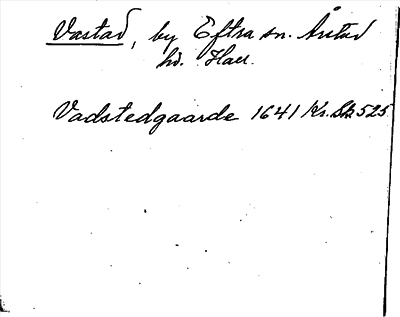 Vastad, by Eftra sn. Årstad
hd. Hall.
Vadstedgaarde 1641 Kr. Sk 525